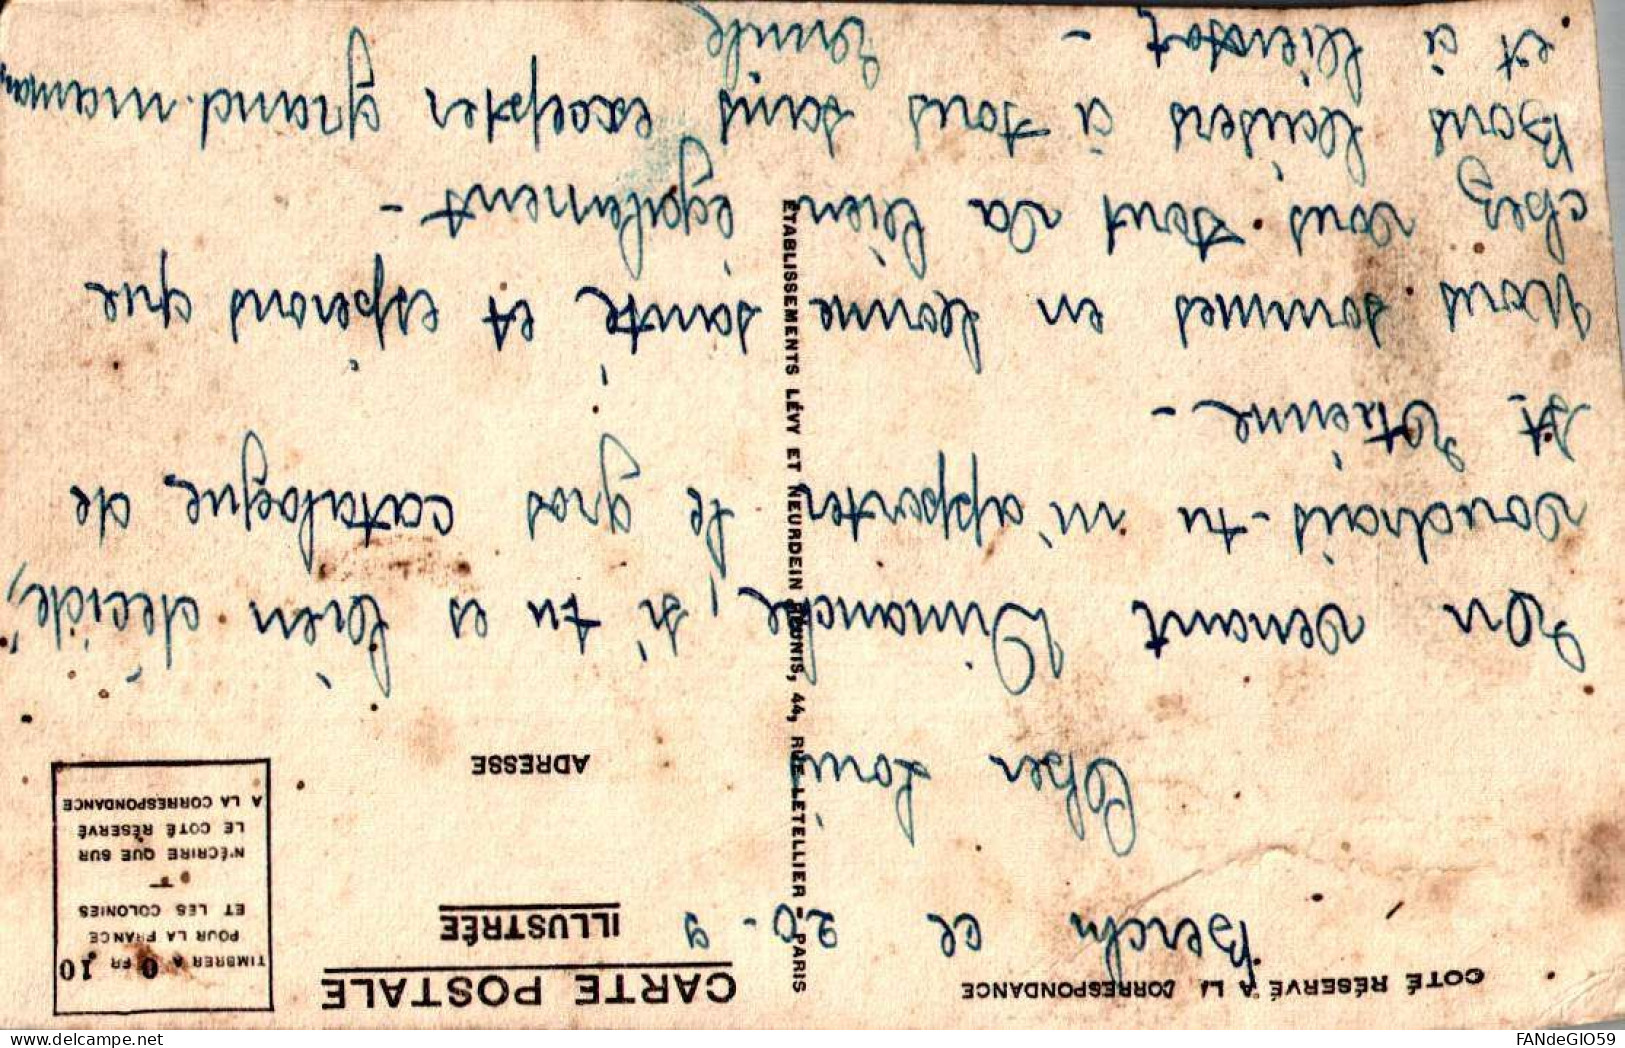 COTÉ RÉSERVÉ A LA CORRESPONDANCE
CARTE POSTALE
ILLUSTRÉE
ADRESSE
TIMBRER A 0 FR 10
POUR LA FRANCE
ET LES COLONIES
N'ÉCRIRE QUE SUR
LE COTÉ RÉSERVÉ
A LA CORRESPONDANCE
ÉTABLISSEMENTS LÉVY ET NEURDEIN RÉUNIS, 44, RUE LETELLIER - PARIS
ce 20-9
Cher Louis
En venant Dimanche, si tu es bien décidé,
voudrais-tu m'apporter le gros catalogue de
St Etienne -
Nous sommes en bonne santé et espérons que
chez vous tout va bien également -
Bons baisers à tous sans excepter grand-maman,
et à bientôt - Emile
FANdeGIO59
www.delcampe.net